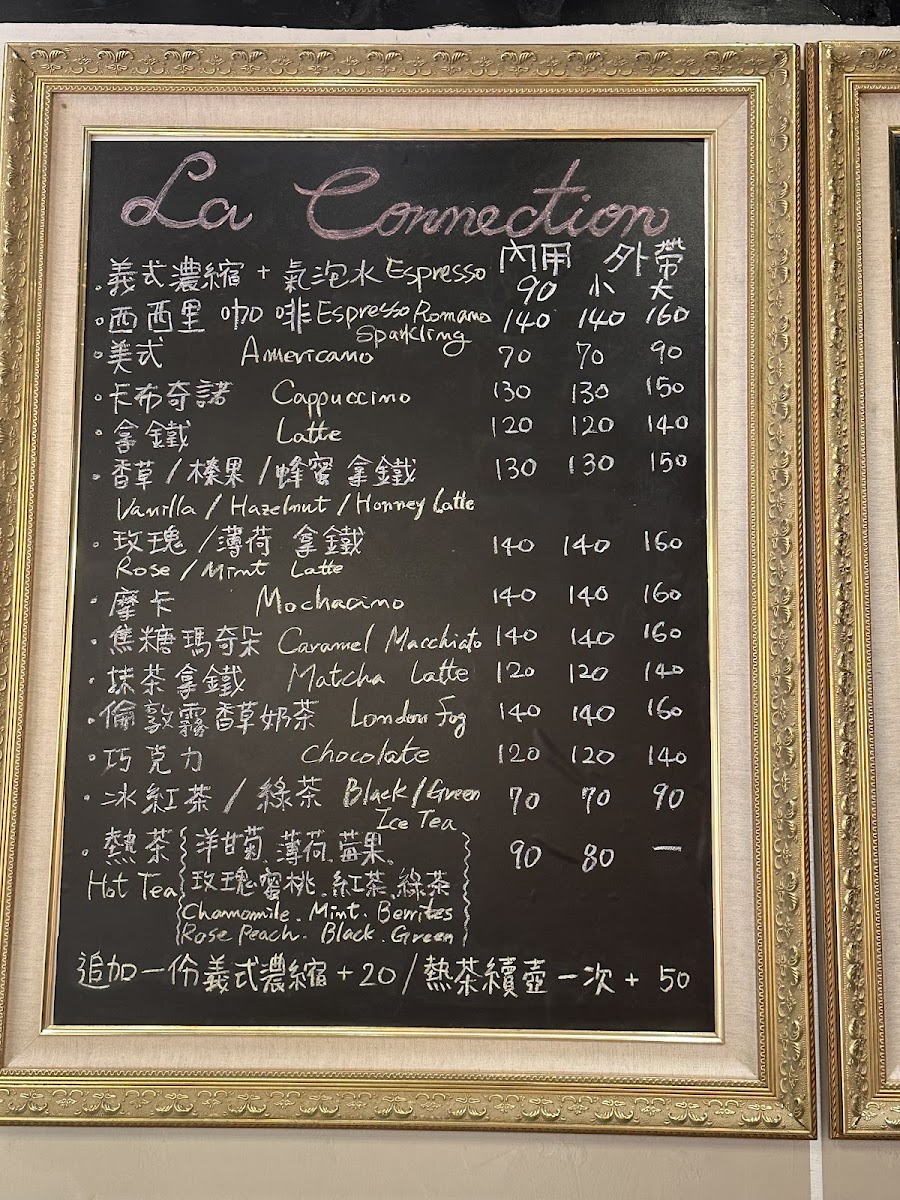 La Connection
內用 外帶
.義式濃縮 + 氣泡水 Espresso 90 小 大
。西西里咖啡 Espresso Romano 140 140 160
Sparkling
。美式 Americano 70 70 90
。卡布奇諾 Cappuccino 130 130 150
。拿鐵 Latte 120 120 140
。香草/榛果/蜂蜜 拿鐵 130 130 150
Vanilla / Hazelnut / Honney Latte
。玫瑰/薄荷 拿鐵 140 140 160
Rose / Mint Latte
.摩卡 Mochacino 140 140 160
.焦糖瑪奇朵 Caramel Macchiato 140 140 160
.抹茶拿鐵 Matcha Latte 120 120 140
.倫敦霧香草奶茶 London Fog 140 140 160
.巧克力 Chocolate 120 120 140
.冰紅茶/綠茶 Black/Green 70 70 90
Ice Tea
.熱茶 洋甘菊.薄荷.莓果、 90 80 —
Hot Tea 玫瑰蜜桃.紅茶.綠茶
Chamomile. Mint. Berrites
Rose Peach. Black. Green
追加一份義式濃縮 + 20 / 熱茶續壺一次 + 50